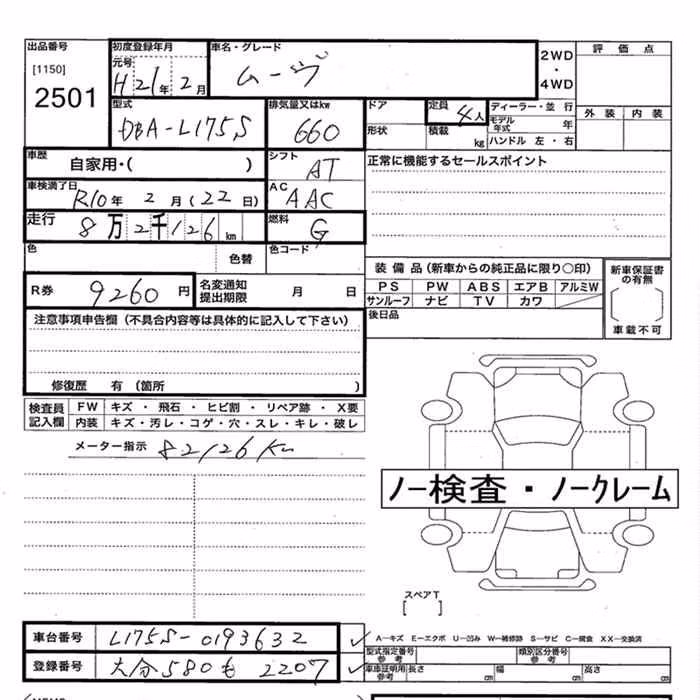 出品番号
[1150]
2501
初度登録年月
元号
H21年2月
車名・グレード
ムーヴ
2WD
・
4WD
評価点
外装 内装
型式
DBA-L175S
排気量又はkw
660
ドア
形状
定員
4人
積載 kg
ディーラー・並行
モデル年式 年
ハンドル 左・右
車歴
自家用・( )
シフト
AT
正常に機能するセールスポイント
車検満了日
R10年2月(22日)
AC
AAC
走行
8万2千126km
燃料
G
色
色替
色コード
装備品(新車からの純正品に限り〇印)
PS PW ABS エアB アルミW
サンルーフ ナビ TV カワ
新車保証書の有無
[ ]
車載不可
R券
9260円
名変通知
提出期限
月 日
後日品
注意事項申告欄(不具合内容等は具体的に記入して下さい)
修復歴 有(箇所 )
検査員
記入欄
FW キズ・飛石・ヒビ割・リペア跡・X要
内装 キズ・汚レ・コゲ・穴・スレ・キレ・破レ
メーター指示 82126Km
ノー検査・ノークレーム
スペアT
[ ]
車台番号
L175S-0193632
登録番号
大分580も2207
A―キズ E―エクボ U―凹み W―補修跡 S―サビ C―腐食 XX―交換済
型式指定番号
参考
類別区分番号
参考
車庫証明用
参考
長さ cm 幅 cm 高さ cm